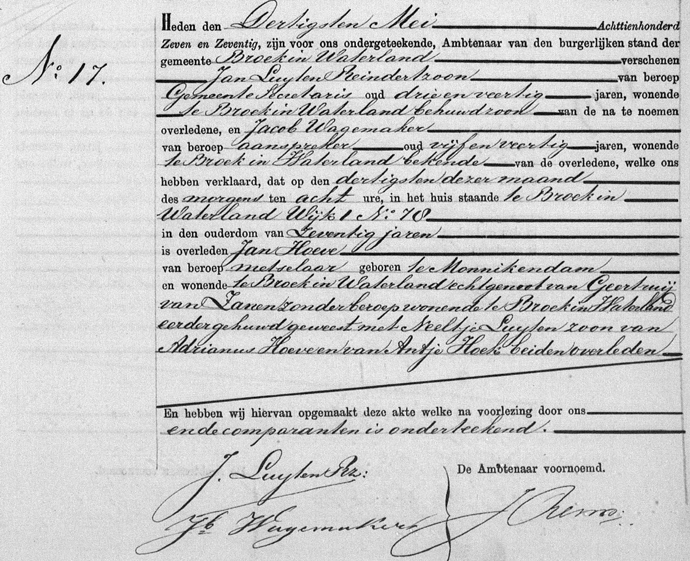 Heden den Dertigsten Mei Achttienhonderd
Zeven en Zeventig, zijn voor ons ondergeteekende, Ambtenaar van den burgerlijken stand der
gemeente Broek in Waterland verschenen
No. 17.
Jan Luyten Reindertzoon van beroep
Gemeente Secretaris oud drie en veertig jaren, wonende
te Broek in Waterland behuwdzoon van de na te noemen
overledene, en Jacob Wagemaker
van beroep aanspreker oud vijf en veertig jaren, wonende
te Broek in Waterland bekende van de overledene, welke ons
hebben verklaard, dat op den dertigsten dezer maand
des morgens ten acht ure, in het huis staande te Broek in
Waterland Wijk 1 No. 78
in den ouderdom van Zeventig jaren
is overleden Jan Hoeve
van beroep metselaar geboren te Monnikendam
en wonende te Broek in Waterland echtgenoot van Geertruij
van Zanen zonder beroep wonende te Broek in Waterland
eerder gehuwd geweest met Neeltje Luyten zoon van
Adrianus Hoeve en van Antje Hoek beiden overleden
En hebben wij hiervan opgemaakt deze akte welke na voorlezing door ons
en de comparanten is onderteekend.
J. Luyten Rz:
De Ambtenaar voornoemd.
Jb Wagemaker